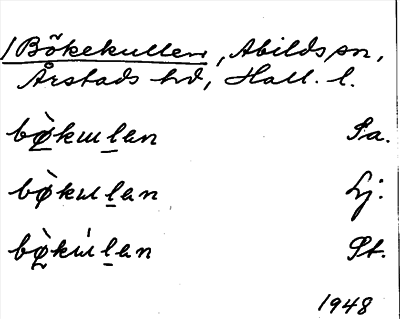 /Bökekullen, Abilds sn,
Årstads hd, Hall. l.
bø̀kɯlan Sa.
bø̀kɯlan Lj.
bø̀kɯ́lan St.
1948